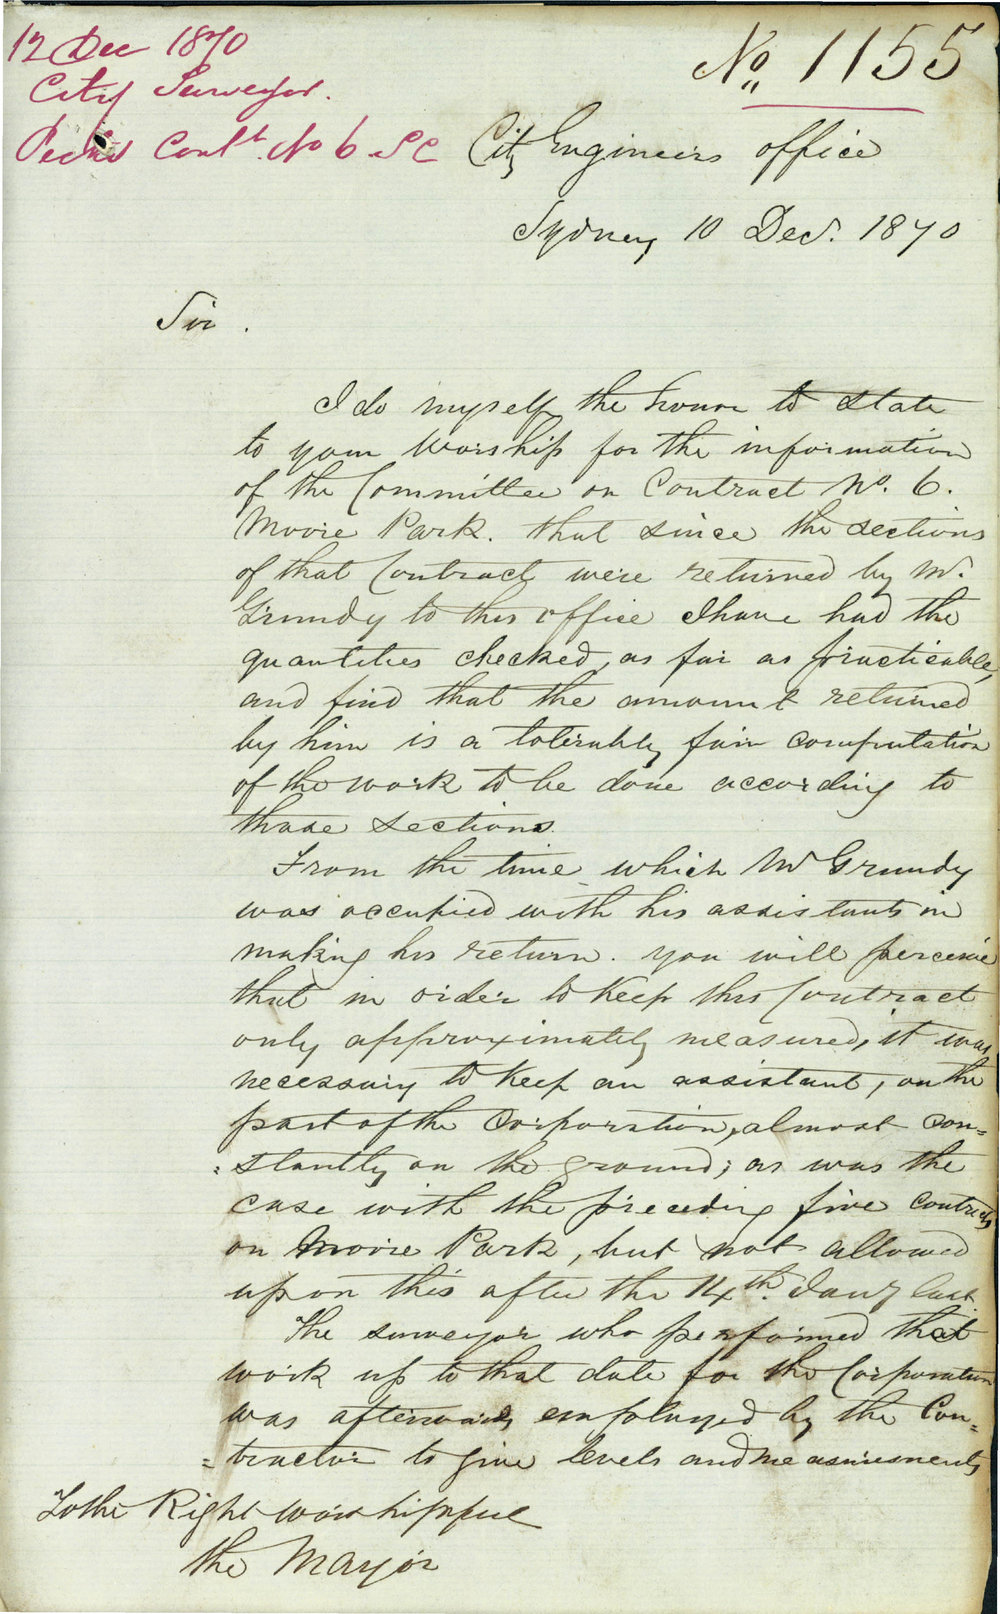 12 Dec 1870
City Surveyor.
Contt. No 6 SC
No. 1155
City Engineers office
Sydney 10 Decr. 1870
Sir.
I do myself the honor to state
to your Worship for the information
of the Committee on Contract No. 6.
Moore Park. that since the sections
of that Contract were returned by Mr.
Grundy to this office I have had the
quantities checked, as far as practicable,
and find that the amount returned
by him is a tolerably fair computation
of the work to be done according to
those sections.
From the time which Mr Grundy
was occupied with his assistants in
making his return. you will perceive
that in order to keep this Contract
only approximately measured, it was
necessary to keep an assistant, on the
part of the Corporation, almost con=
=stantly on the ground; as was the
case with the preceding five contracts
on Moore Park, but not allowed
upon this after the 14th. Jany last.
The surveyor who performed that
work up to that date for the Corporation
was afterwards employed by the Con=
=tractor to give levels and measurements
To the Right Worshipful
the Mayor